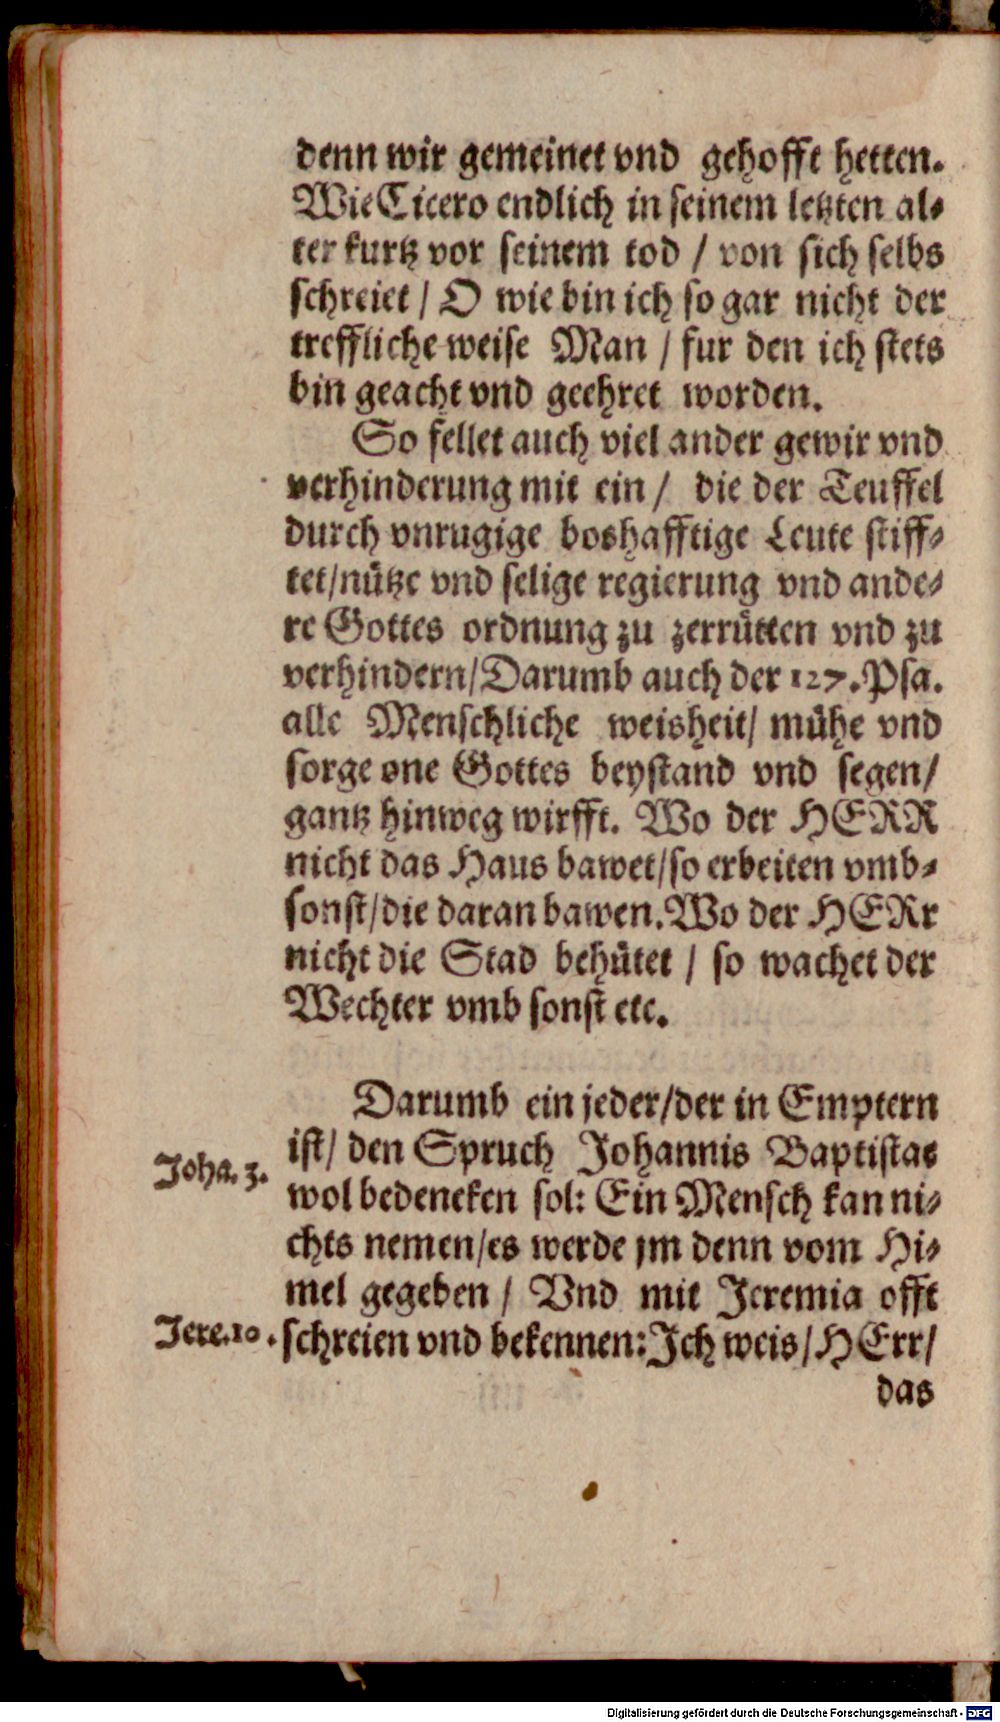 denn wir gemeinet vnd gehofft hetten.
Wie Cicero endlich in seinem letzten al⸗
ter kurtz vor seinem tod / von sich selbs
schreiet / O wie bin ich so gar nicht der
treffliche weise Man / fur den ich stets
bin geacht vnd geehret worden.
So fellet auch viel ander gewir vnd
verhinderung mit ein / die der Teuffel
durch vnrugige boshafftige Leute stiff⸗
tet/nütze vnd selige regierung vnd ande⸗
re Gottes ordnung zu zerrütten vnd zu
verhindern/Darumb auch der 127. Psa.
alle Menschliche weisheit/ mühe vnd
sorge one Gottes beystand vnd segen/
gantz hinweg wirfft. Wo der HERR
nicht das Haus bawet/so erbeiten vmb⸗
sonst/die daran bawen. Wo der HERr
nicht die Stad behütet / so wachet der
Wechter vmb sonst etc.
Darumb ein jeder/der in Emptern
ist/ den Spruch Johannis Baptistae
Joha. 3.
wol bedencken sol: Ein Mensch kan ni⸗
chts nemen/es werde jm denn vom Hi⸗
mel gegeben / Vnd mit Jeremia offt
Jere. 10.
schreien vnd bekennen: Jch weis/HErr/
das
Digitalisierung gefördert durch die Deutsche Forschungsgemeinschaft - DFG